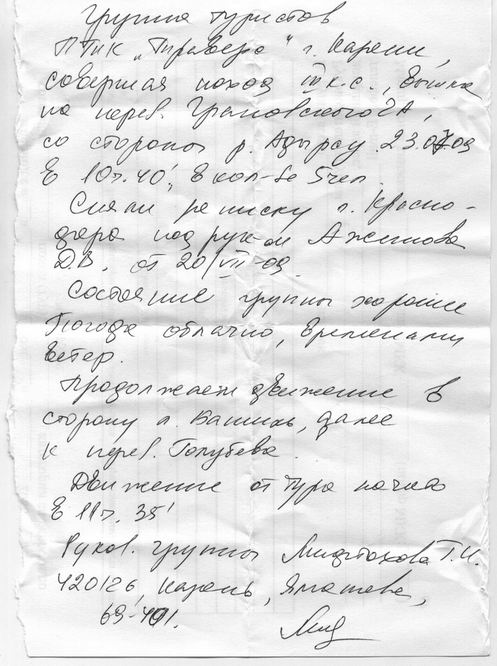 Группа туристов
ПТиК „Траверз" г. Казани,
совершая поход III к.с., вышла
на перев. Грановского 2А,
со стороны р. Адырсу 23.07.09
в 10ч. 40', в кол-ве 5чел.
Сняли записку г. Красно-
дара под рук-м
Д.В. от 20/VII-09.
Состояние группы хорошее
Погода облачно, временами
ветер.
Продолжаем движение в
сторону л. Башиль, далее
к перев. Голубева.
Движение от тура начато
в 11ч. 35'
Руков. группы Т.И.
420126, Казань, Ямашева,
69-401.